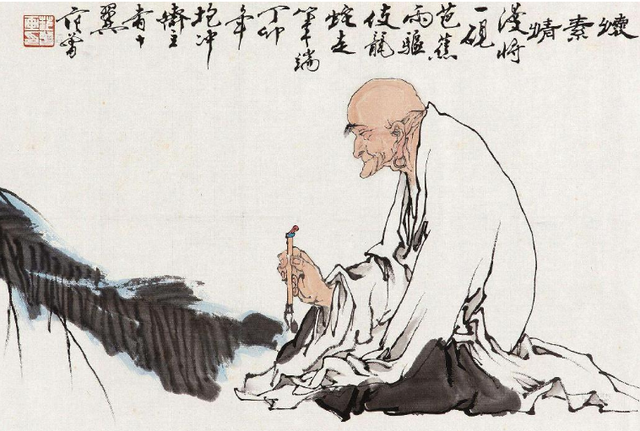 懷
素
情
漫將
一硯
芭蕉
雨驅
使龍
蛇走
筆端
丁卯
年
抱冲
齋主
十
翼
范曾